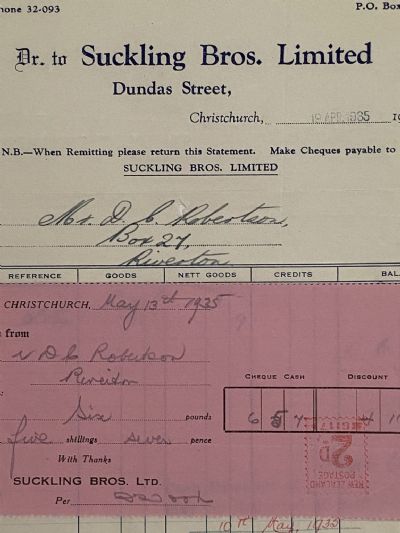 hone 32-093 P.O. Box
Dr. to Suckling Bros. Limited
Dundas Street,
Christchurch, 19 APR 1935 19
N.B.—When Remitting please return this Statement. Make Cheques payable to
SUCKLING BROS. LIMITED
Mr. D. C. Robertson,
Box 27,
Riverton
REFERENCE GOODS NETT GOODS CREDITS BAL
CHRISTCHURCH, May 13th 1935
from
D C Robertson
Riverton
Six pounds
five shillings seven pence
CHEQUE CASH DISCOUNT
6 5 7 4 11
With Thanks
SUCKLING BROS. LTD.
Per
NEW ZEALAND
POSTAGE
2D
10th May, 1935